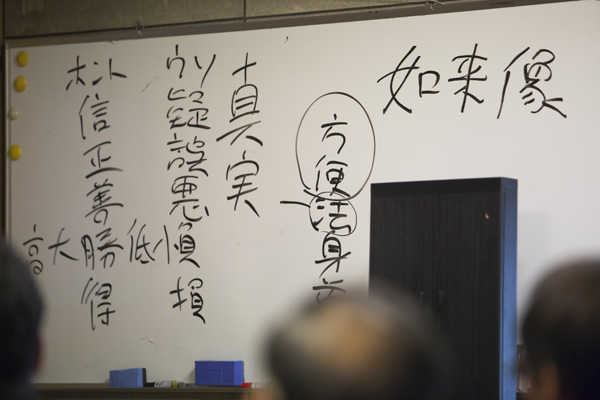 如来像
方便法身
真実
ウソ
疑誤悪負損
低小
ホント
信正善勝得
高大